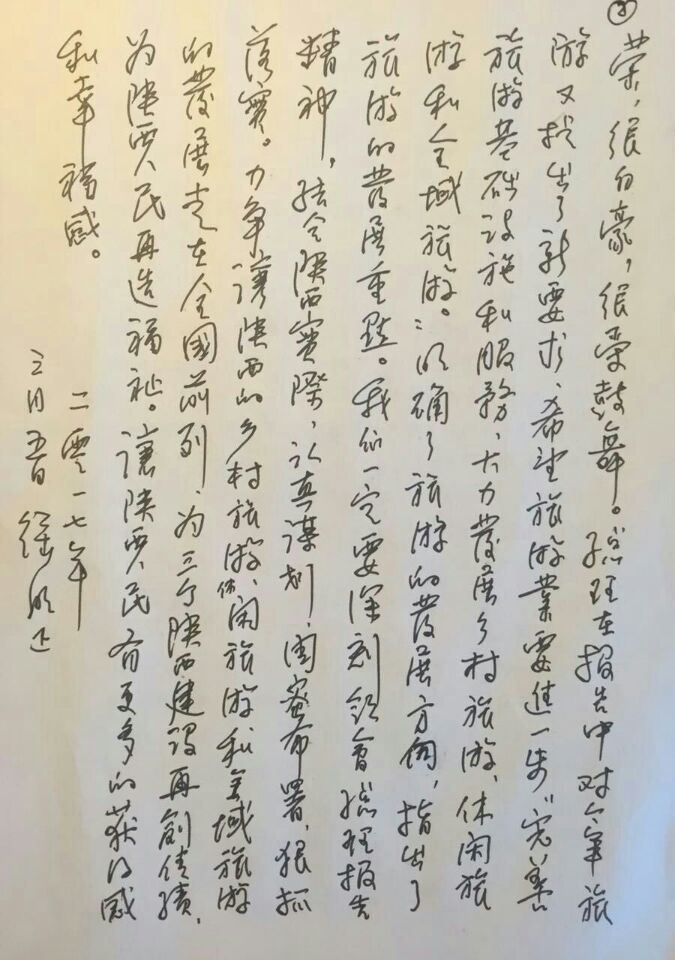 ②
荣，很自豪，很受鼓舞。总理在报告中对今年旅
游又提出了新要求、希望旅游业要进一步“完善
旅游基础设施和服务、大力發展乡村旅游、休闲旅
游和全域旅游。”明确了旅游的發展方向，指出了
旅游的發展重點。我们一定要深刻领会总理报告
精神，结合陕西實際，认真谋划，周密布署，狠抓
落實。力争讓陕西的乡村旅游、休闲旅游和全域旅游
的發展走在全國前列、为三个陕西建設再創佳績，
为陕西人民再造福祉。讓陕西人民有更多的获得感
和幸福感。
二零一七年
三月五日 徐明正